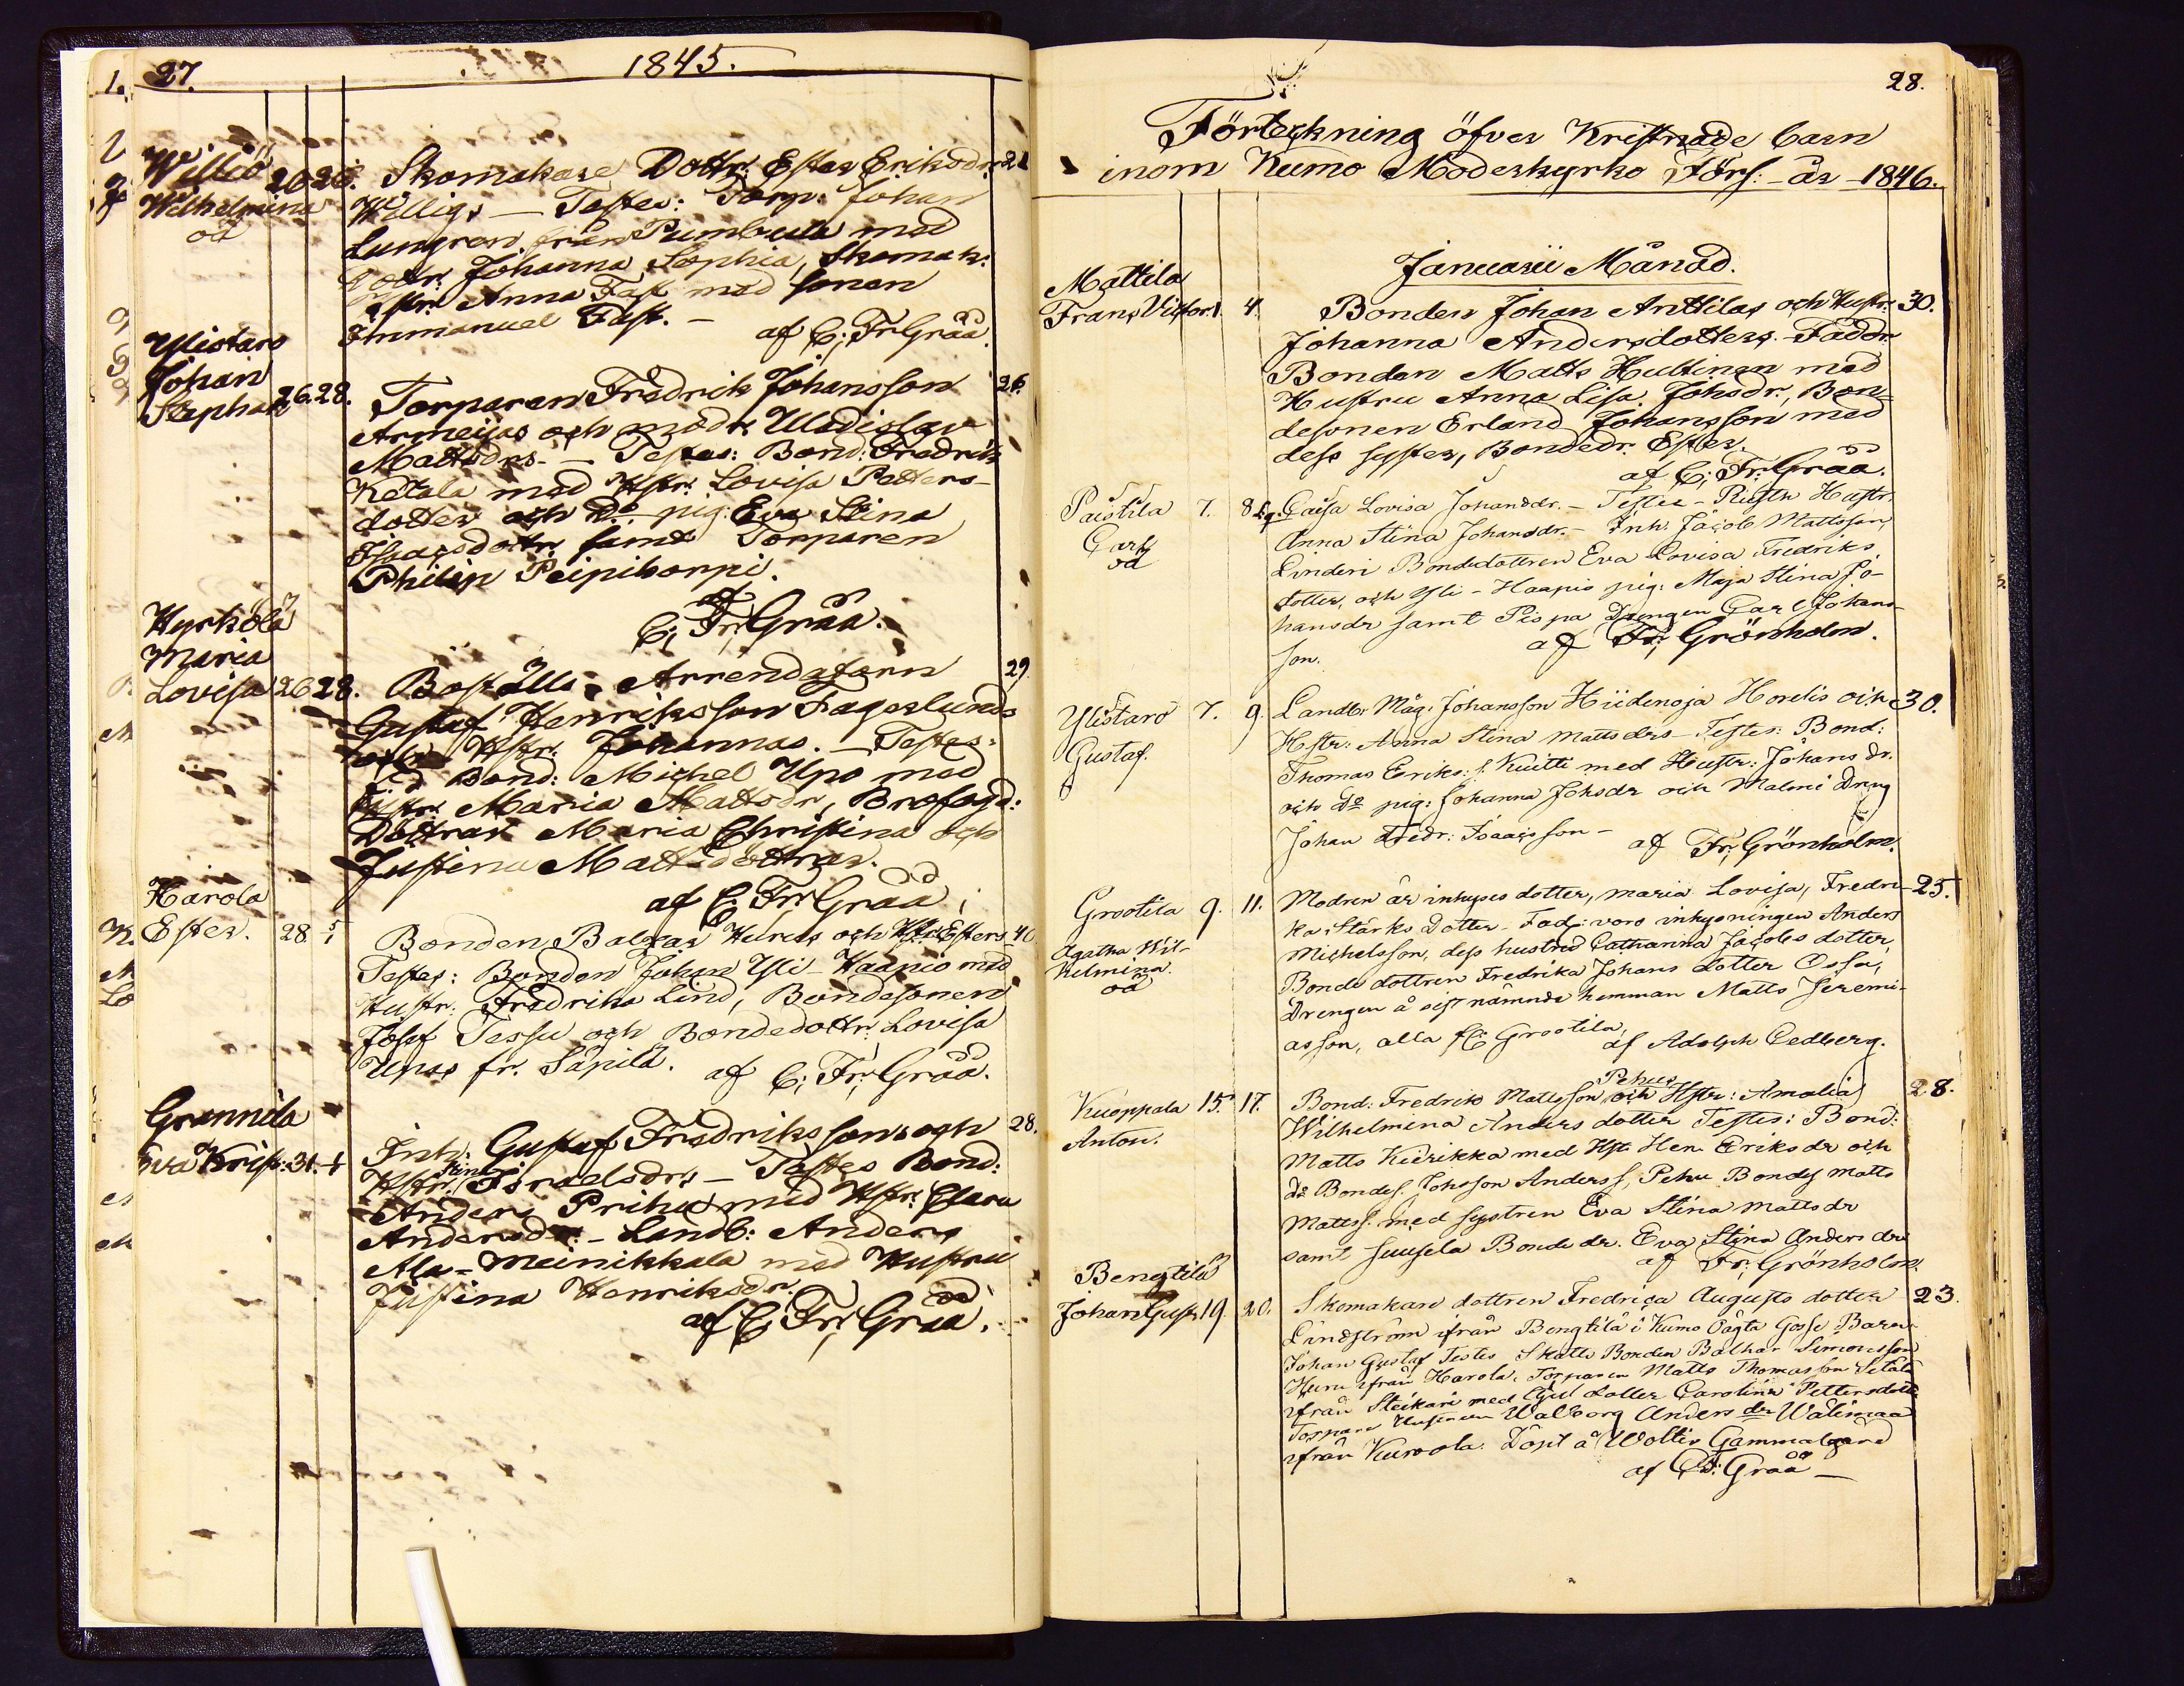 27.
1845.
Williö
Wilhelmina
oä
26 28.
Skomakare Dottr. Ester Eriksdr. 21
Willigs — Testes: Torp: Johan
Lungren från Pumbula med
Dottr. Johanna Sophia, Skomak:
Hstr. Anna Fast med sonen
Immanuel Fast. —
af C. Fr. Gråå
Ylistaro
Johan
Stephan
26. 28.
Torparen Fredrik Johansson 26.
Armeijas och modr.
Mattsdrs. — Testes: Bond: Fredrik
Ketala med Hstr. Lovisa Petters-
dotter och Do pig: Eva Stina
dottr. samt Torparen
Philip Peipikorpi.
af
C. Fr. Gråå.
Kyrkölä
Maria
Lovisa 26 28.
Boställs-Arrendatorn 29
Gustaf Henriksson Fagerlunds
och Hstr. Johannas. — Testes:
Bond: Michel Upo med
Hstr. Maria Mattsdr, Brofogd:
Döttrar Maria Christina och
Justina Mattsdöttrar.
af C. Fr. Gråå
Harola
Ester. 28 5/1
Bonden Balzar Hurus och Hstr Esters 40
Testes: Bonden Johan Yli-Haapio med
Hustr: Fredrika Lind, Bondesonen
Josef Tessu och Bondedottr: Lovisa
Upas fr. Säpilä.
af C. Fr. Gråå.
Grannila
Eva Krist: 31.
Inh: Gustaf Fredrikssons och 28.
Hstr. Stin Israelsdrs — Testes Bond:
Anders Prihu med Hstr: Clara
Andersdr: — Landb: Anders
Ala-Meinikkala med Hustru
Justina Henriksdr.
af C. Fr. Gråå.
28.
Förteckning öfver Kristnade barn
inom Kumo Moderkyrko Förs: år 1846.
Januarii Månad.
Mattila
Frans Victor. 1 4.
Bonden Johan Anttilas och Hustr: 30.
Johanna Andersdotters. — Faddr.
Bonden Matts Huttinen med
Hustru Anna Lisa Johsdr., Bon-
desonen Erland Johansson med
dess syster, Bondedr. Ester.
af C. Fr. Gråå.
Paistila 7. 8
Carl
oä
Caisa Lovisa Johansdr. — Testes — Hustr.
Anna Stina Johansdr. — Inh. Jacob Mattsson,
Linderi Bondedottren Eva Lovisa Fredriks
dotter, och Yli-Haapio pig: Maja Stina Jo-
hansdr samt Pispa Drengen Carl Johans-
son.
af Fr. Grönholm.
Ylistaro 7. 9.
Gustaf.
Landb. Måg. Johansson Hiidenoja Horelis och 30.
Hstr: Anna Stina Mattsdrs — Testes: Bond:
Thomas Eriks: s. Kuitti med Hustr: Johans dr.
och do pig: Johanna Johsdr och Malmi Dreng
Johan Fredr: Isaacsson —
af Fr. Grönholm.
Grootila 9. 11.
Agatha Wil-
helmina.
oä
Modren är inhyses dotter, Maria Lovisa, Fredri- 25.
ka, Starks Dotter — Fad: voro inhysningen Anders
Michelsson, dess hustru Catharina Jacobs dotter,
Bonde dottren Fredrika Johans dotter Ossa,
Drengen å sist nämnde hemman Matts Jeremi-
asson, alla fr Grootila,
af Adolph Cedberg.
Kuoppala 15. 17.
Anton.
Bond: Fredrik Mattsson Pehus och Hstr: Amalia 28.
Wilhelmina Anders dotter Testes: Bond:
Matts Kierikka med Hstr Hen Eriksdr och
do Bondes. Johsson Anderss, Pehu Bonds Matts
Mattss. med systren Eva Stina Mattsdr
samt Suusela Bonde dr. Eva Stina Anders dr
af Fr. Grönholm.
Bengtilä
Johan Gust. 19. 20.
Skomakare dottren Fredrica Augusts dotter 23.
Lindström ifrån Bengtilä i Kumo Oägta Gosse Barn
Johan Gustaf Testes Skatte Bonden Balthar Simonsson
Huru ifrån Harola, Torparen Matts Thomasson
ifrån Steikari med dotter Carolina Pettersdotter
Torpare Hustrun Walborg Anders dr Wälimaa
ifrån Kurola. Döpt å Woltis Gammalgård
af C. F. Gråå —